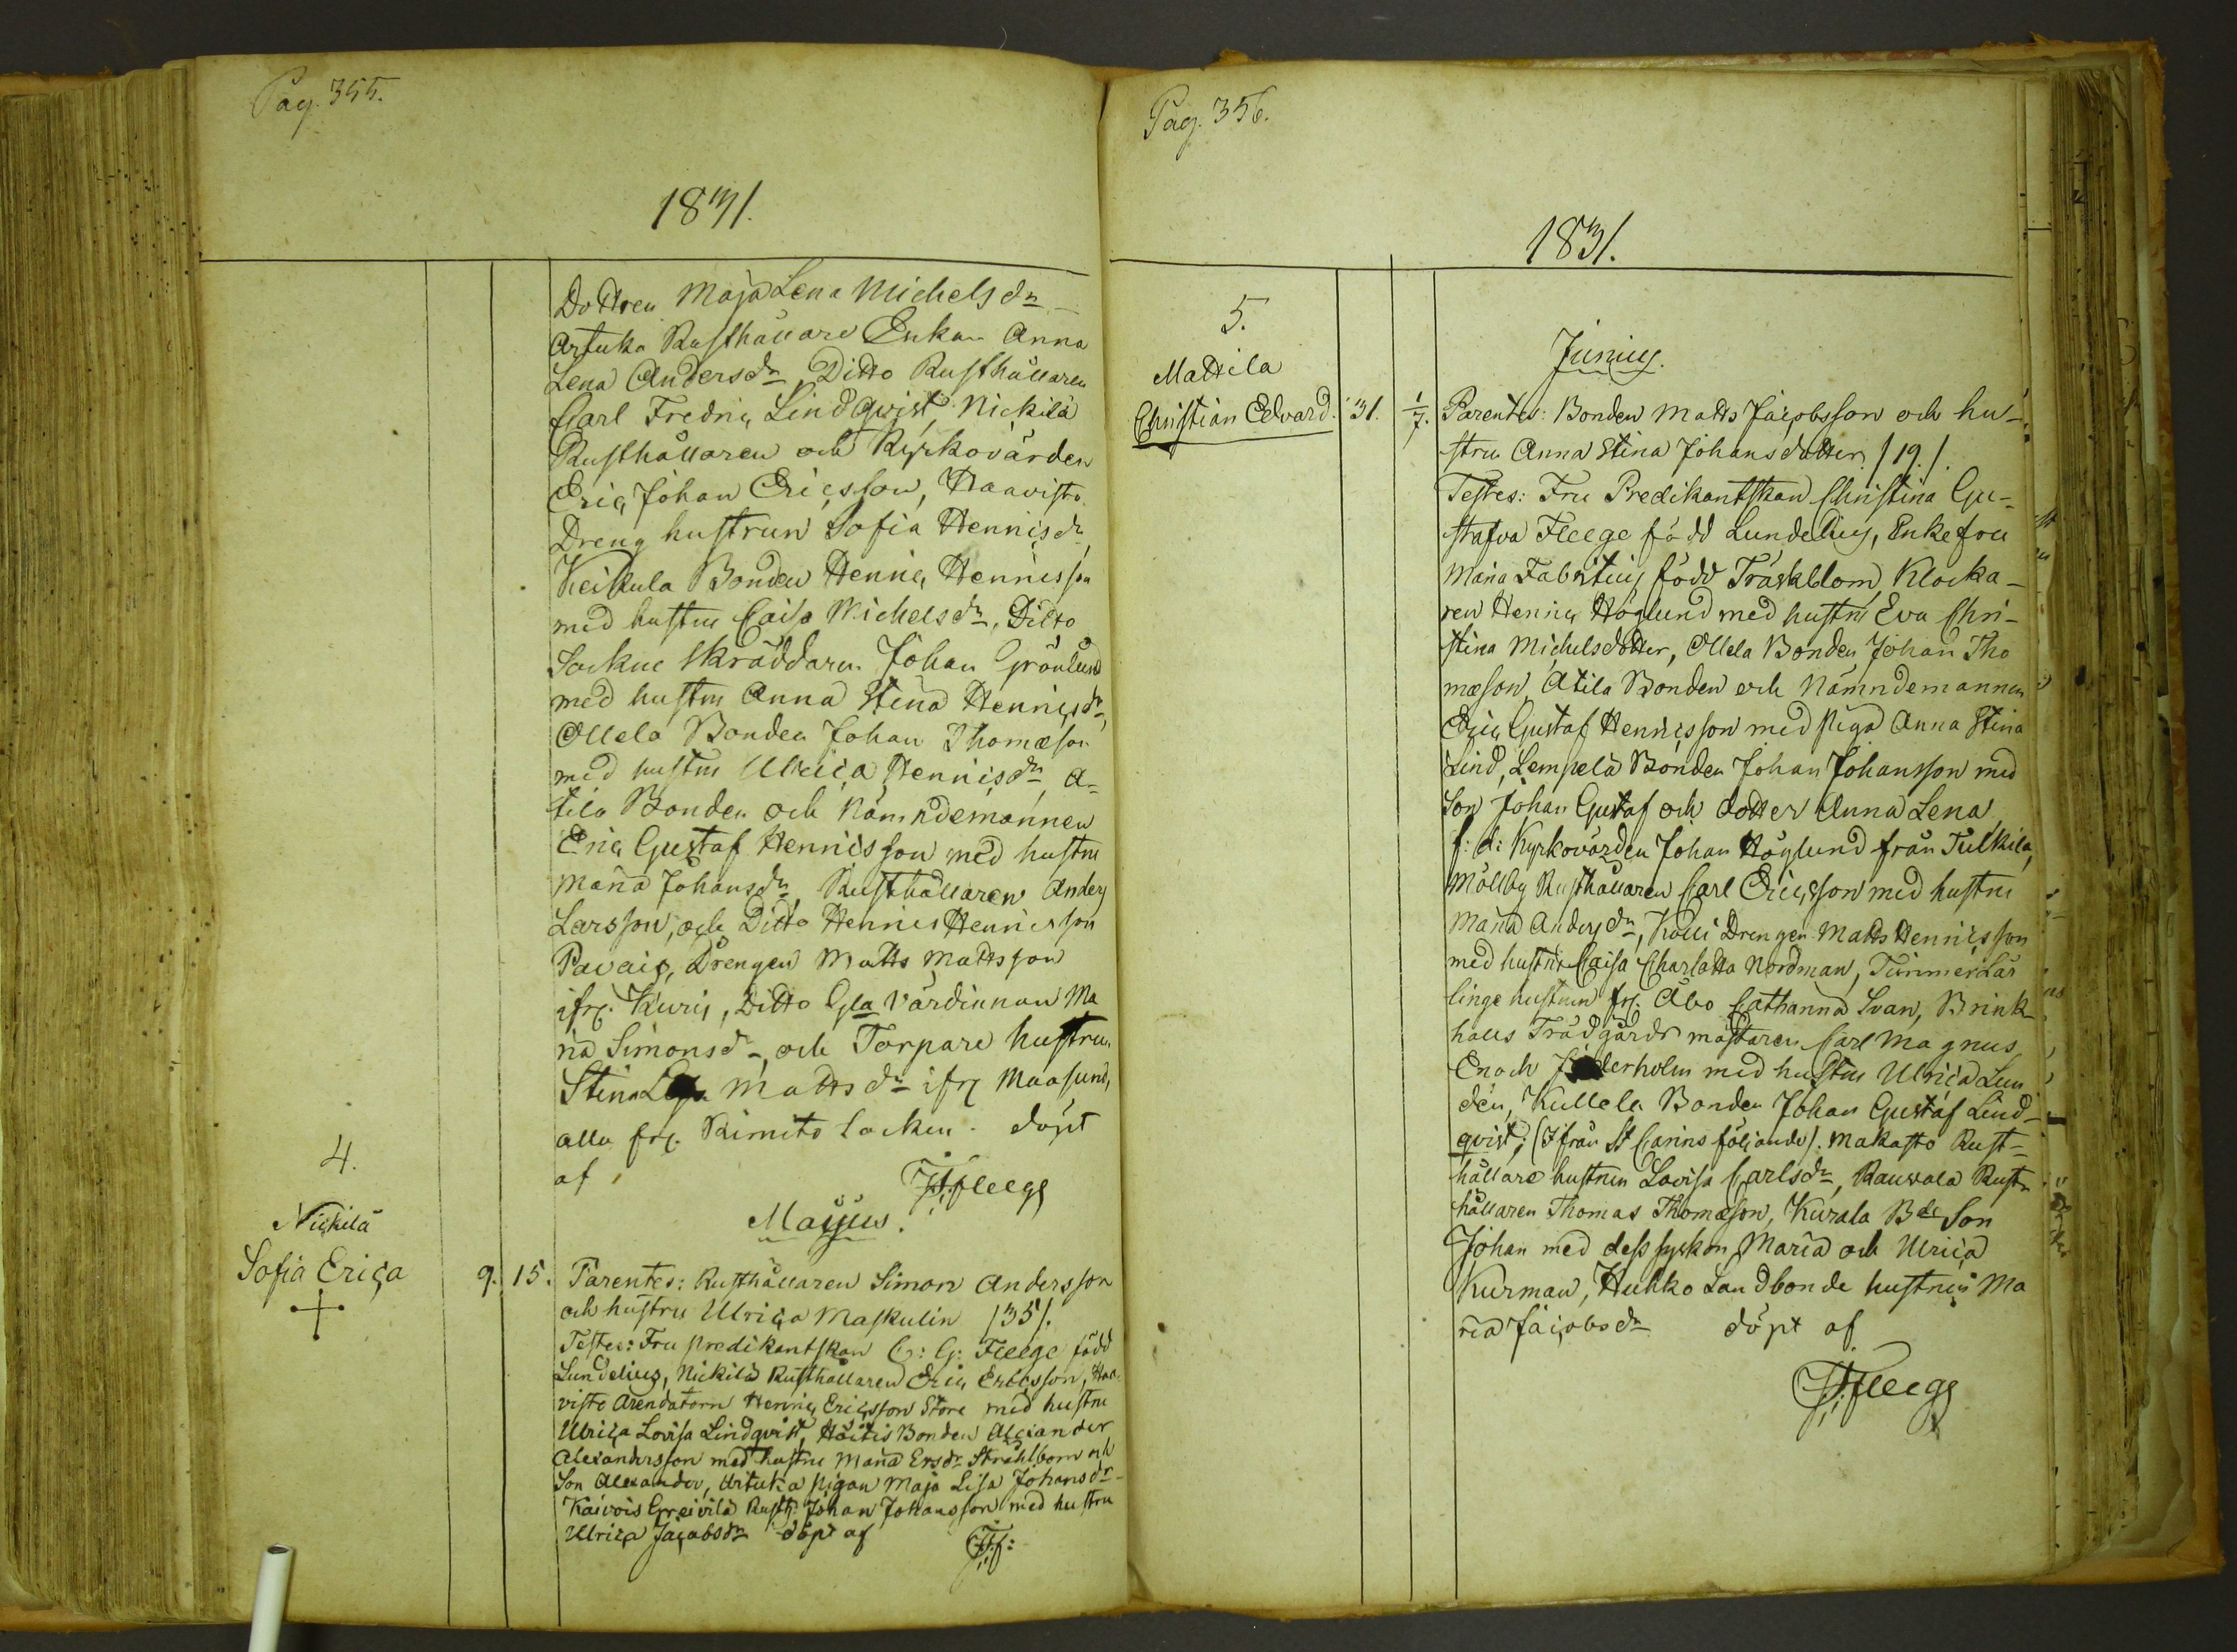 Pag. 355.
1831.
Dottren Maja Lena Michelsdr
Artuka Rusthållare Enkan Anna
Lena Andersdr, Ditto Rusthållaren
Carl Fredric Lindqvist, Nickilä
Rusthållaren och Kyrkovärden
Eric Johan Ericsson, Haavisto
Dreng hustrun Sofia Hennicsdr
Keikula Bonden Henric Henricsson
med hustru Caisa Michelsdr, Ditto
Sockne Skräddaren Johan Grönlund
med hustru Anna Stina Hennicsdr,
Ollela Bonden Johan Thomæson
med hustru Ulrica Hennicsdr, A-
tila Bonden och Nämndemannen
Eric Gustaf Hennicsson med hustru
Maria Johansdr, Rusthållaren Anders
Larsson, och Ditto Hennic Hennicsson
Pavais, Drengen Matts Mattsson
ifrg. Kuris, Ditto Gla Värdinnan Ma
ria Simonsdr och Torpare hustrun
Stina Mattsdr ifrg Maasund,
alla frg. Kimito Socken. döpt
af JHfleege
Majus.
4.
Nickilä
Sofia Erica
9. 15. Parentes: Rusthållaren Simon Andersson
och hustru Ulrica Maskulin /35/.
Testes: Fru Predikantskan C: G: Fleege född
Lundelius, Nickilä Rusthållaren Eric Ericsson, Haa
visto Arendatorn Henric Ericsson Store med hustru
Ulrica Lovisa Lindqvist, Höitis Bonden Alexander
Alexandersson med hustru Maria Ersdr Stråhlborn och
Son Alexander, Artuka pigan Maja Lisa Johansdr
Kaivois Greivilä Rusth: Johan Johansson med hustru
Ulrica Jacobsdr döpt af JHf:
Pag. 356.
1831.
5.
Mattila
Christian Edvard. 31. 1/7.
Junius.
Parentes: Bonden Matts Jacobsson och hu-
stru Anna Stina Johansdotter /19/.
Testes: Fru Predikantskan Christina Gu-
stafva Fleege född Lundelius, Enkefru
Maria Fabritius född Träskblom, Klocka-
ren Henric Höglund med hustru Eva Chri-
stina Michelsdotter, Ollela Bonden Johan Tho
mæson, Atila Bonden och Nämndemannen
Eric Gustaf Hennicsson med piga Anna Stina
Lind, Lempelä Bonden Johan Johansson med
Son Johan Gustaf och dotter Anna Lena,
f: d: Kyrkovärden Johan Höglund från Tulkila,
Möllby Rusthållaren Carl Ericsson med hustru
Maria Andersdr, Kolli Drengen Matts Hennicsson
med hustru Caisa Charlotta Nordman, Timmer Lär
linge hustrun frg. Åbo Catharina Svan, Brink-
halls Trädgårds mästaren Carl Magnus
Enoch med hustru Ulrica Lun
dén, Kullela Bonden Johan Gustaf Lind-
qvist; (Ifrån St Carins följande). Makasto Rust-
hållare hustrun Lovisa Carlsdr, Rauvola Rust-
hållaren Thomas Thomæson, Kurala Bde Son
Johan med dess syskon Maria och Ulrica
Kurman, Huhko Landbonde hustrun Ma
ria Jacobsdr döpt af
JHfleege